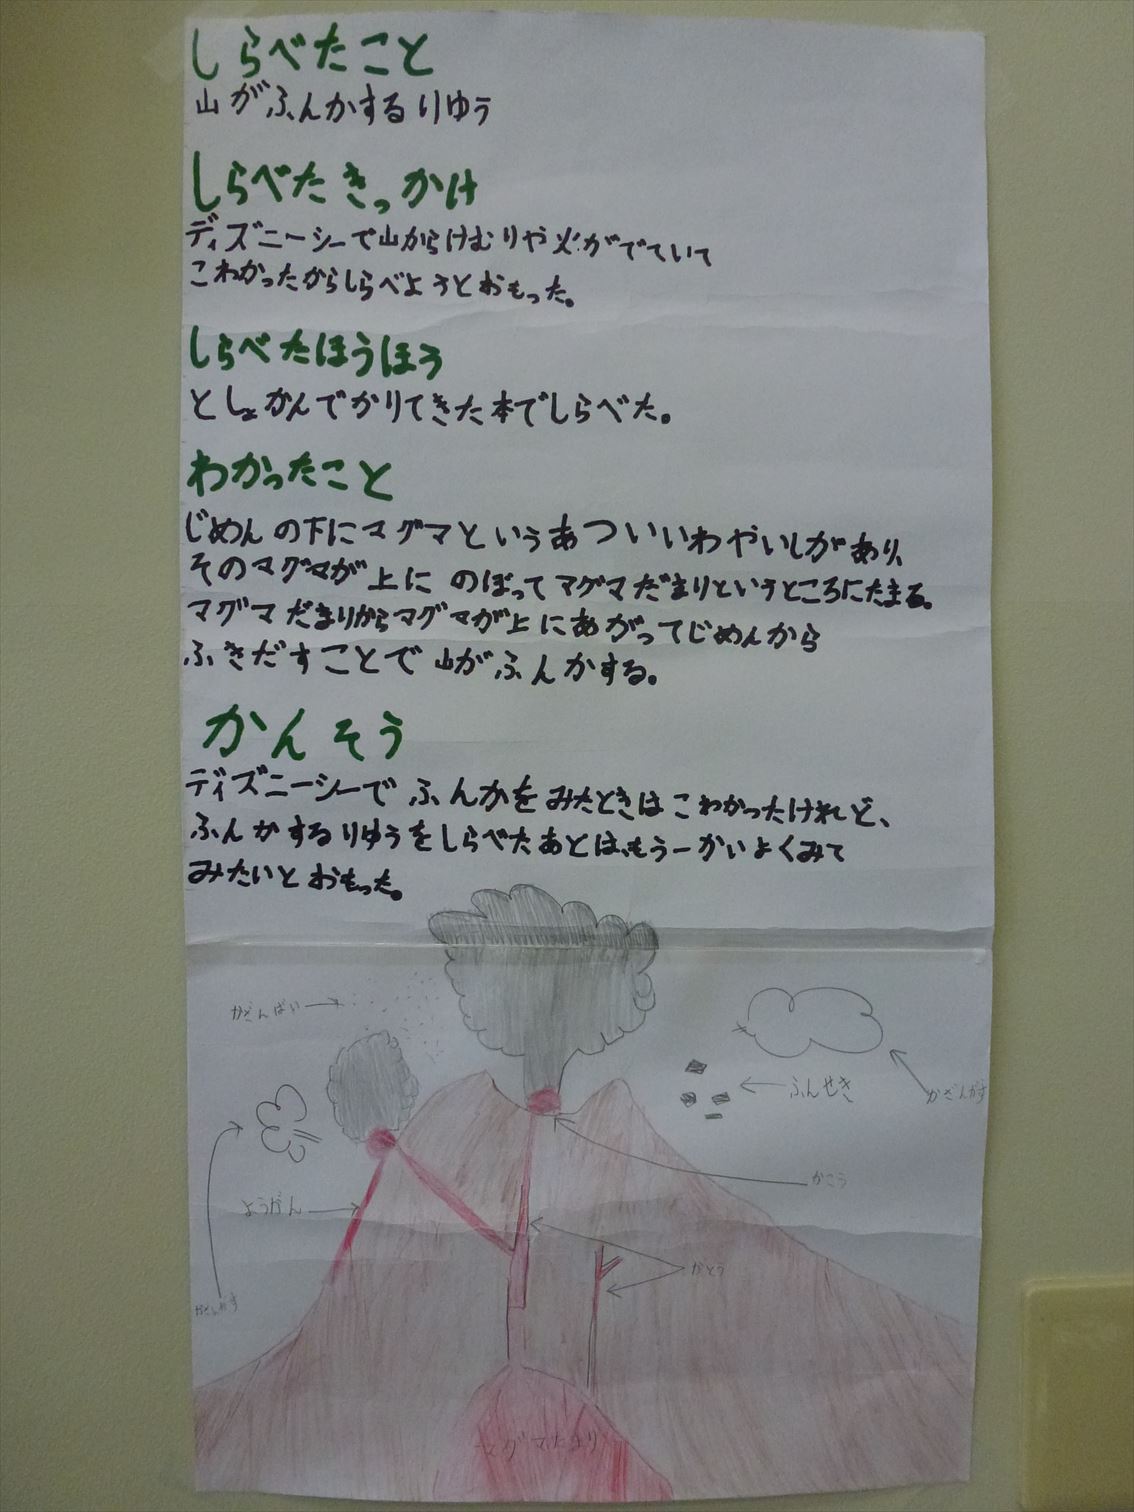 しらべたこと
山がふんかするりゆう
しらべたきっかけ
ディズニーシーで山からけむりや火がでていて
こわかったからしらべようとおもった。
しらべたほうほう
としょかんでかりてきた本でしらべた。
わかったこと
じめんの下にマグマというあついいわやいしがあり、
そのマグマが上にのぼってマグマだまりというところにたまる。
マグマだまりからマグマが上にあがってじめんから
ふきだすことで山がふんかする。
かんそう
ディズニーシーでふんかをみたときはこわかったけれど、
ふんかするりゆうをしらべたあとは、もう一かいよくみて
みたいとおもった。
かざんばい
ふんせき
かざんガス
かこう
ようがん
かどう
かざんガス
マグマだまり